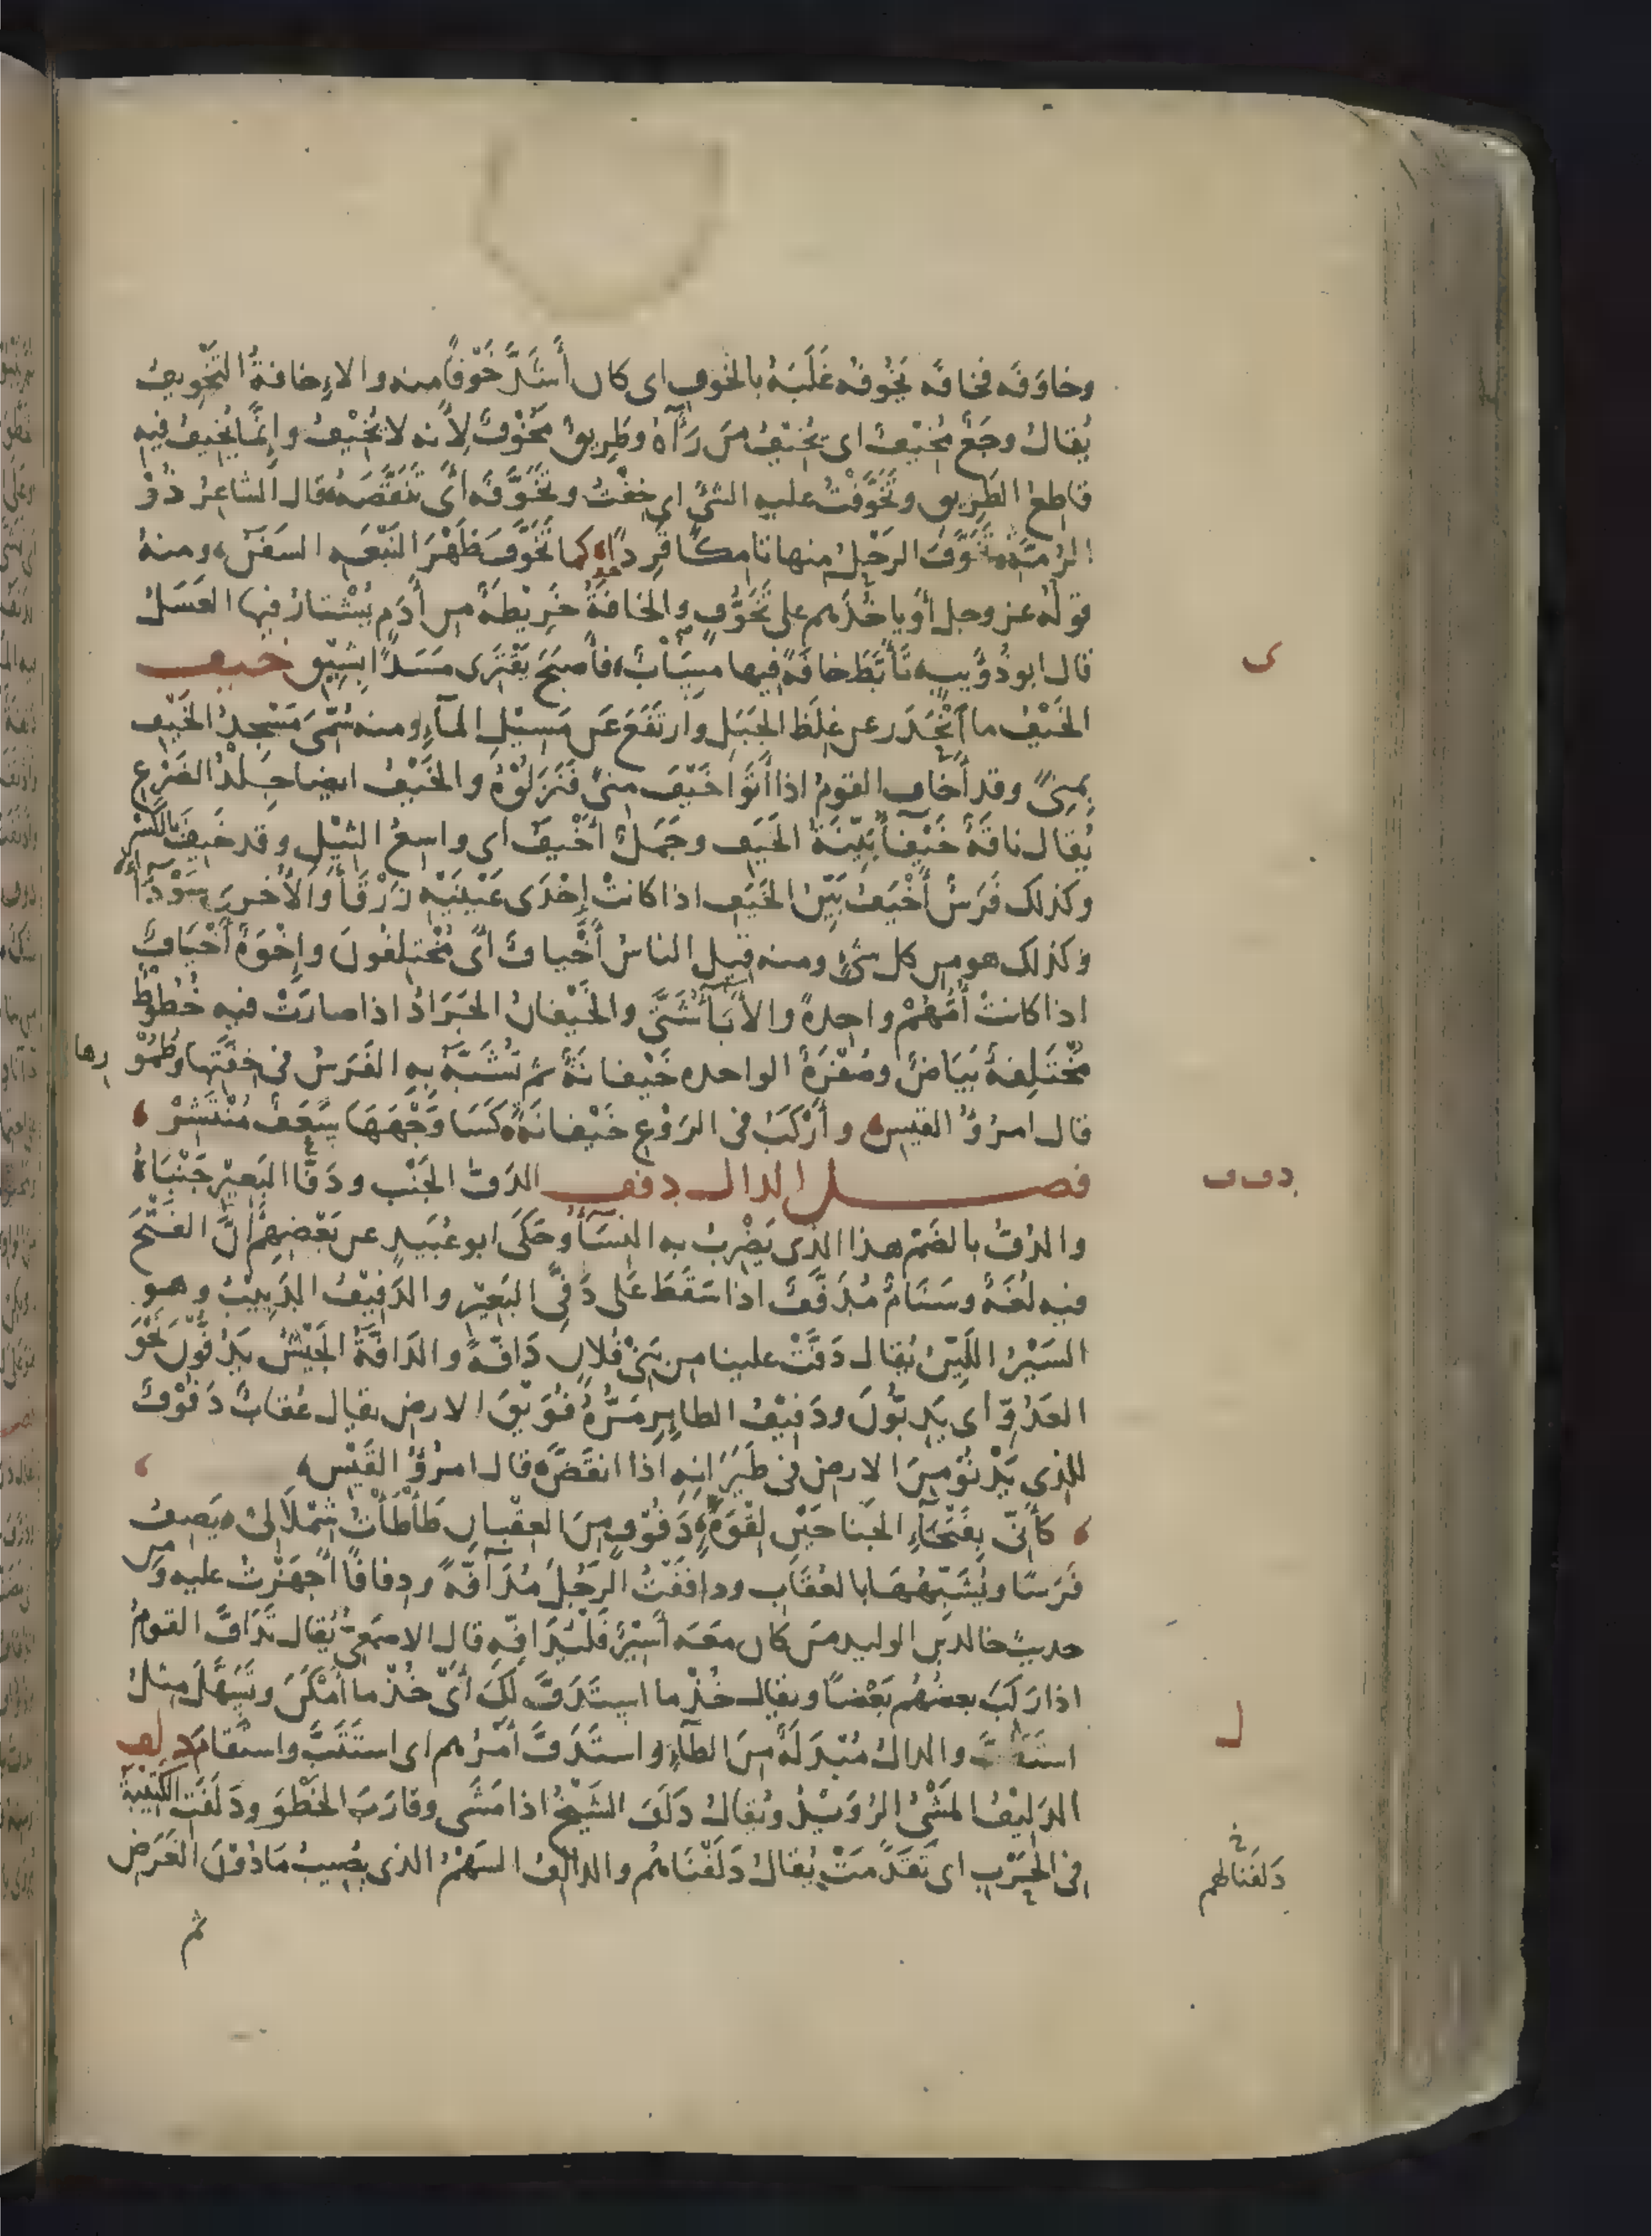 وخاوَفَه فخافَه يَخُوفُه غَلَبَهُ بالخوفِ اى كان أَشَدَّ خَوْفًا منه والاِخافةُ التَّخْوِيفُ
يُقالُ وجَعٌ مُخِيْفٌ اى يُخِيْفُ مَن رَآهُ وطَرِيقٌ مَخُوْفٌ لِأَنه لا يُخِيْفُ وإِنَّمَا يُخِيْفُ فيه
قاطِعُ الطَّرِيقِ وتَخَوَّفْتُ عليه الشئَ اى خِفْتُ وتَخَوَّفَه أَىْ تَنَقَّصَهُ قال الشاعرُ ذُوْ
الرُّمَّةِ تَخَوَّفَ الرَحْلُ منها تامِكًا قَرِدًا كما تَخَوَّفَ ظَهْرَ النَّبْعَةِ السَفَنُ ومنهُ
قولُه عزوجل أَوْ ياخُذَهم على تَخَوُّفٍ والخافَةُ خَرِيْطَةٌ مِن أَدَمٍ يُشْتارُ فيها العَسَلُ
قال ابو ذُؤَيبٍ تَأَبَّطَ خافَةً فيها مِسَابٌ فأَصبَحَ يَقْتَرِى مَسَدًا بِشِيْقِ خيف
الخَيْفُ ما انْحَدَرَ عن غِلَظِ الجَبَلِ وارتَفَعَ عَن مَسِيْلِ الماءِ ومنه سُمِّىَ مَسْجِدُ الخَيْفِ
بِمِنىً وقد أَخافَ القومُ اذا أَتَوْا خَيْفَ مِنىً فَنَزَلُوْهُ والخَيْفُ ايضا جِلْدُ الضَرْعِ
يُقال ناقةٌ خَيْفآءُ بَيِّنَةُ الخَيَفِ وجَمَلٌ أَخْيَفُ اى واسِعُ الثِيْلِ وقد خَيِفَ بالكَسْرِ
وكذلك فَرَسٌ أَخْيَفُ بَيِّنُ الخَيَفِ اذا كانتْ إِحْدَى عَيْنَيْهِ زَرْقَآءَ والأُخرىَ سَوْدَآءَ
وكذلك هو من كل شئٍ ومنه قيل الناسُ أَخْيافٌ أَىْ مُخْتَلِفُونَ وإِخْوَةٌ أَخْيَافٌ
اذا كانتْ أُمُّهُمْ واحِدةً والأَبَآءُ شَتَّى والخَيْفانُ الجَرَادُ اذا صارَتْ فيه خُطُوْطٌ
مُخْتَلِفةٌ بَيَاضٌ وصُفْرَةٌ الواحده خَيْفانَةٌ ثم تُشَبَّهُ به الفَرَسُ فى خِفَّتِها وطُمُوْرِها
قال امرؤ القيسِ وأَرْكَبُ فى الرَوْعِ خَيْفانَةً كَسَا وَجْهَهَا سَعَفٌ مُنْتَشِرْ
فصل الدال دفف الدَفُّ الجَنْب ودَفَّا البَعِيْرِ جَنْبَاهُ
والدُفُّ بالضَمّ هذا الذى يَضْرِبُ به النِسَآءُ وحَكَى ابو عُبَيدٍ عن بَعْضِهِمْ أَنَّ الفَتْحَ
فيه لُغَةٌ وسَنَامٌ مُدَفَّفٌ اذا سَقَطَ عَلى دَفَّى البَعِيْرِ والدَفِيْفُ الدَبِيْبُ وهو
السَيْرُ اللَيِّنُ يُقال دَفَّتْ علينا من بَنِىْ فُلانٍ دَافَّةٌ والدَافَّةُ الجَيْشُ يَدِفُّوْنَ نَحْوَ
العَدُوِّ اى يَدِبُّوْنَ ودَفِيْفُ الطائِرِ مَرُّهُ فُوَيْقَ الارض يقال عُقابٌ دَفُوْفٌ
للذى يَدْنُوْ مِنَ الارض فى طَيَرَانِه اذا انقَضَّ قال امرُؤُ القَيْسِ
كأَنِّى بِفَتْخَآءِ الجَناحَيْنِ لِقْوَةٍ دَفُوْفٍ مِنَ العِقْبانِ طَأْطَأْتُ شِمْلَالى يَصِفُ
فَرَسًا ويُشَبِّهُهَا بالعُقَابِ ودافَفْتُ الرَّجُلَ مُدَآفَّةً ودِفافًا اَجْهَزْتُ عليه ومن
حديثِ خالدِ بن الوليد مَن كان مَعَه أَسِيْرٌ فَلْيُدَافِّه قال الاصمَعِىُّ يُقال تَدَافَّ القومُ
اذا رَكِبَ بعضُهُم بَعْضًا ويقال خُذْ ما استَدَفَّ لَكَ أَىْ خُذْ ما أَمْكَنَ وتَسَهَّلَ مِثلُ
استَطَفَّ والدالُ مُبْدَلَةٌ مِنَ الطآءِ واستَدَفَّ أَمْرُهم اى استَتَبَّ واستَقامَ دلف
الدَلِيْفُ المَشْىُ الرُوَيْدُ ويُقالُ دَلَفَ الشَيْخُ اذا مَشَى وقارَبَ الخَطْوَ ودَلَفَتِ الكَتِيْبةُ
فى الحَرْبِ اى تَقَدَّمَتْ يُقالُ دَلَفْنَاهُم والدالِفُ السَهْمُ الذى يُصِيبُ مَا دُوْنَ الغَرَضِ
ثم
ى
دفف
ل
دَلَفنا لهم